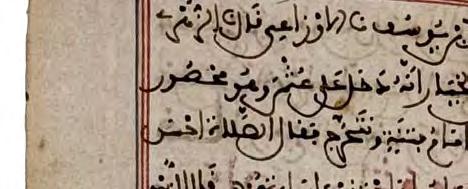 بن يوسف نا الاوزاعي قال نا الزهري
خيار انه دخل على عثمن وهو محصور
امام فتنة ونتحرج فقال الصلاة احسن